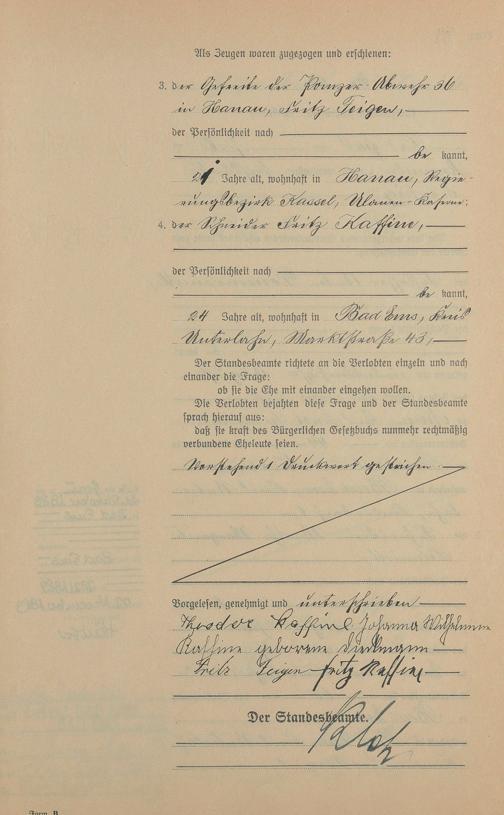 Als Zeugen waren zugezogen und erschienen:
3. der Gefreite der Panzer-Abwehr 36
in Hanau, Fritz Teigen,
der Persönlichkeit nach
be kannt,
21 Jahre alt, wohnhaft in Hanau, Regie-
rungsbezirk Kassel, Ulanen-Kaserne;
4. der Schneider Fritz Kaffine,
der Persönlichkeit nach
be kannt,
24 Jahre alt, wohnhaft in Bad Ems, Kreis
Unterlahn, Marktstraße 43,
Der Standesbeamte richtete an die Verlobten einzeln und nach
einander die Frage:
ob sie die Ehe mit einander eingehen wollen.
Die Verlobten bejahten diese Frage und der Standesbeamte
sprach hierauf aus:
daß sie kraft des Bürgerlichen Gesetzbuchs nunmehr rechtmäßig
verbundene Eheleute seien.
Vorstehend 1 Druckwort gestrichen.
Vorgelesen, genehmigt und unterschrieben
Theodor Kaffine Johanna Wilhelmine
Kaffine geborene Diedkmann
Fritz Teigen Fritz Kaffine
Der Standesbeamte.
Klotz
Form. B.